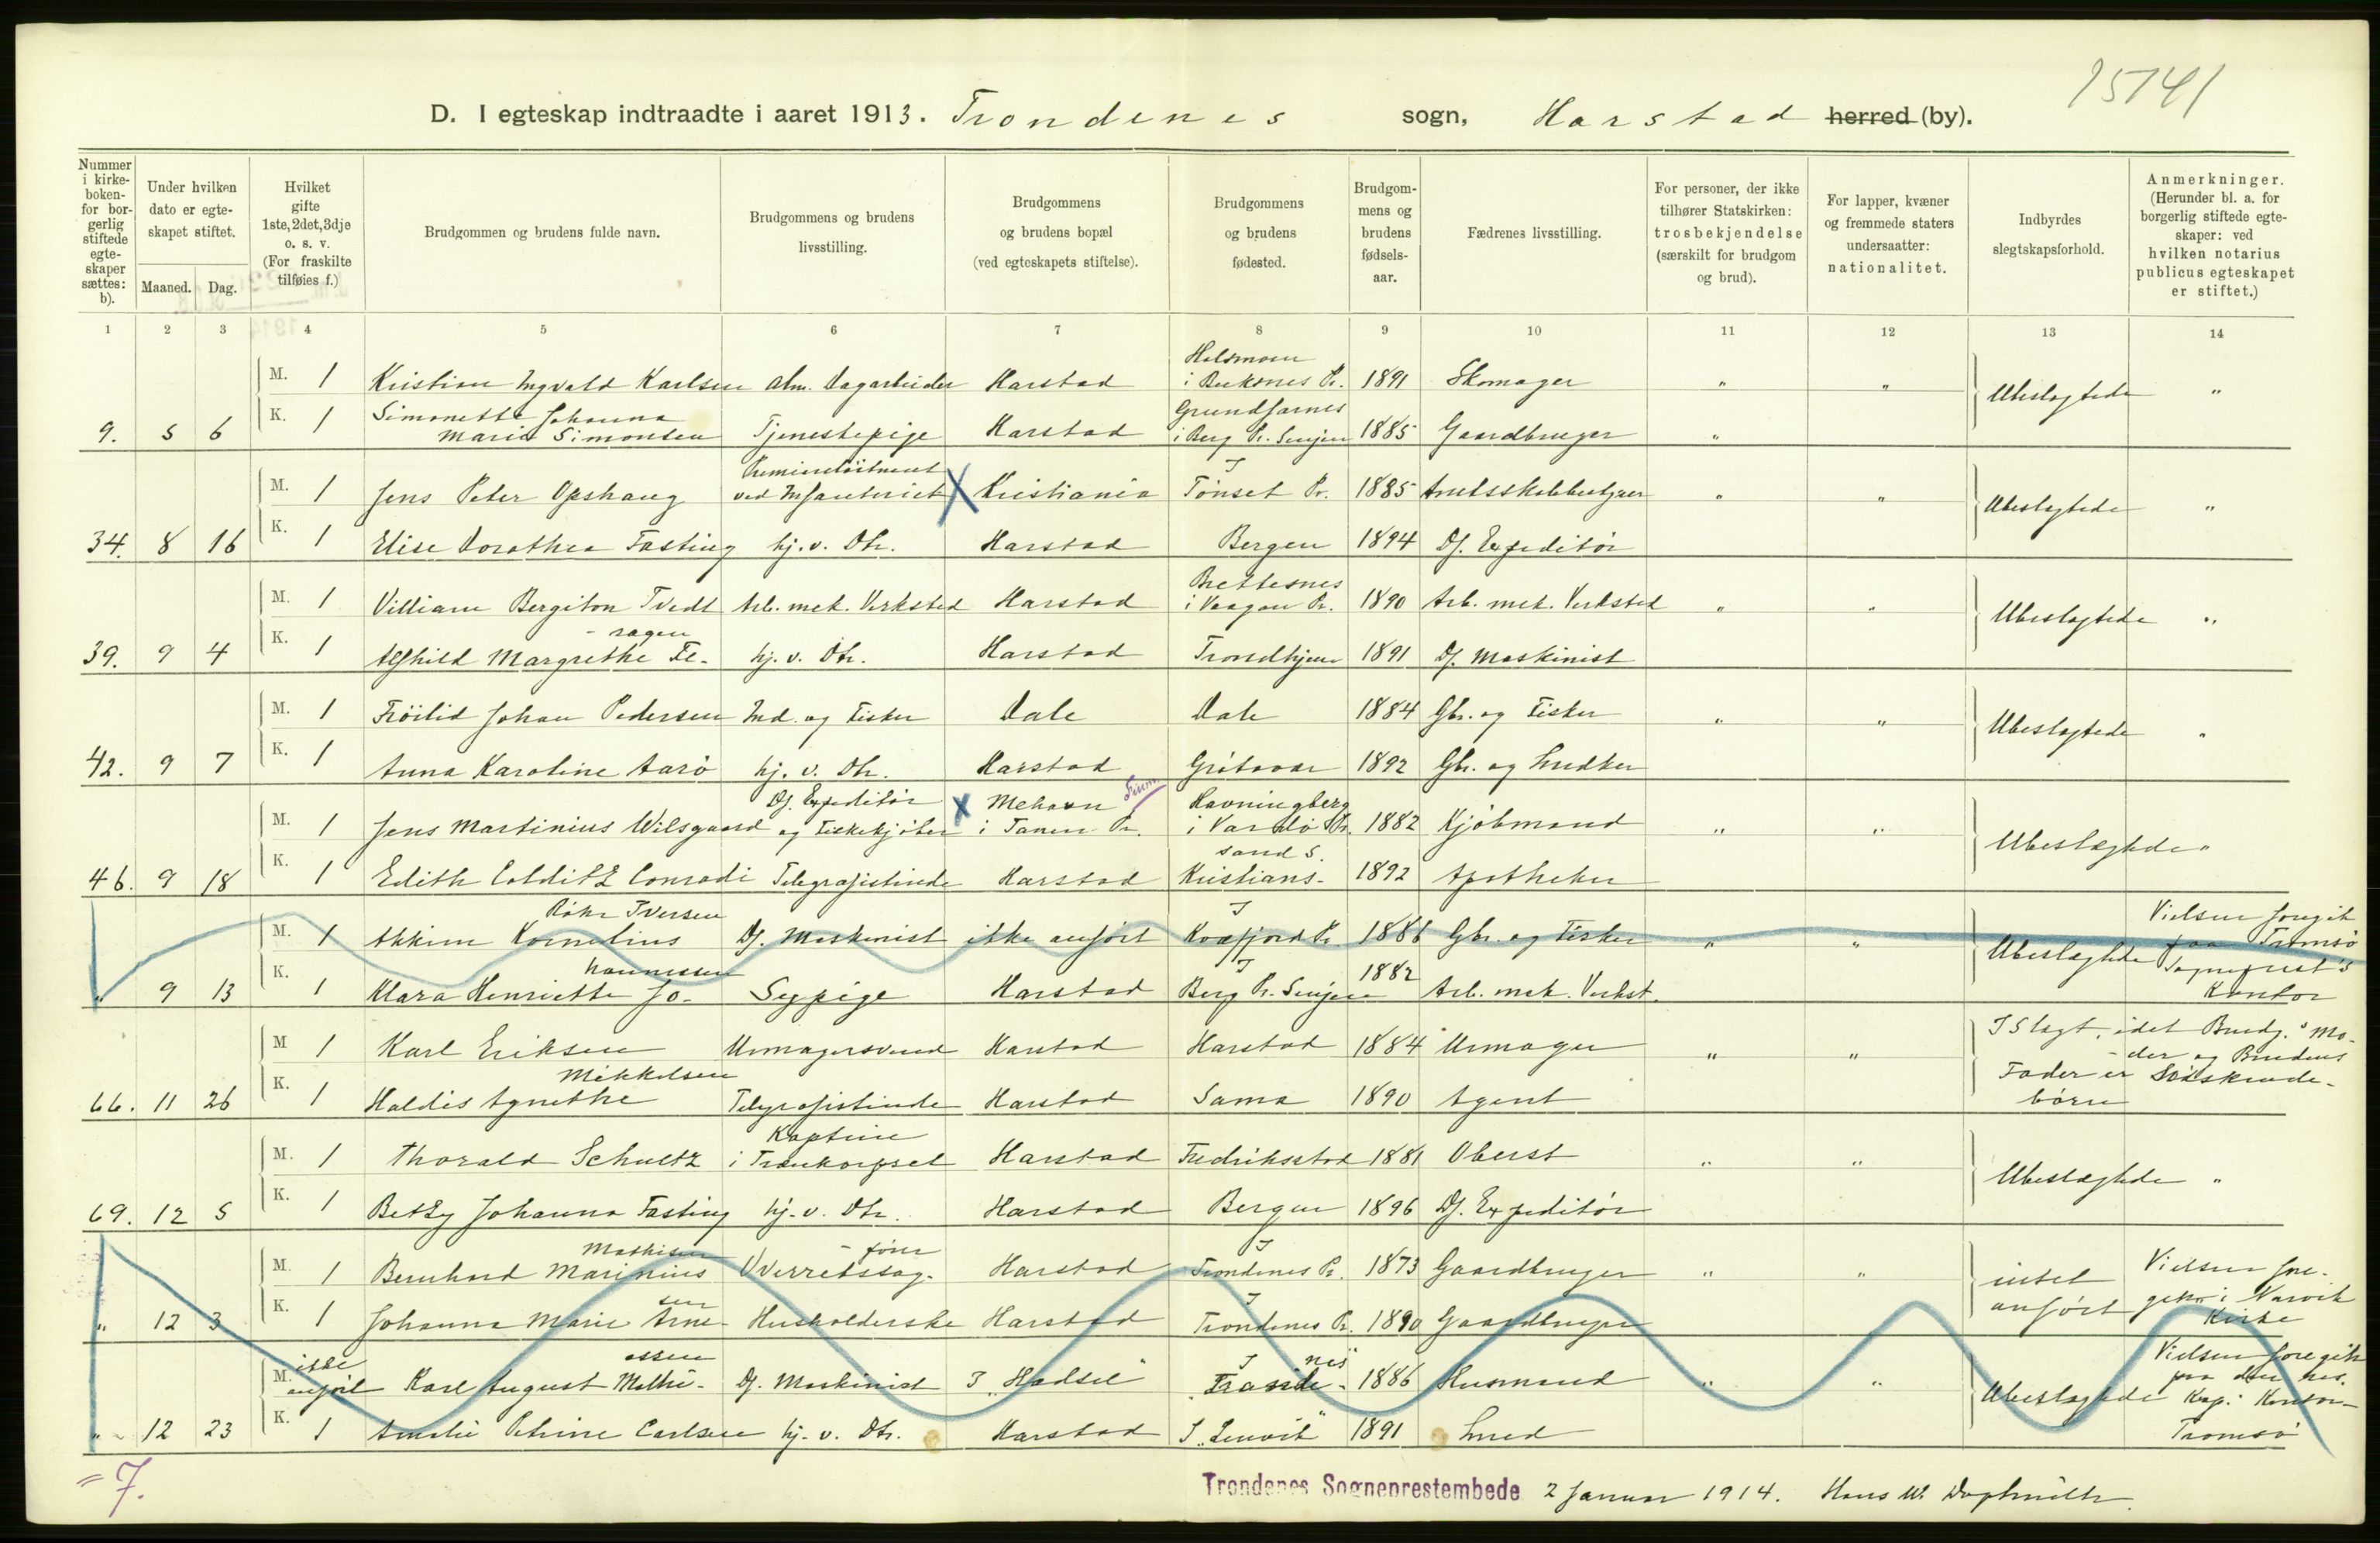 15141
D. I egteskap indtraadte i aaret 1913. Trondenes sogn, Harstad herred (by).
Nummer i kirkeboken for borgerlig stiftede egteskaper sættes: b).
Under hvilken dato er egteskapet stiftet.
Maaned. Dag.
Hvilket gifte 1ste, 2det, 3dje o. s. v. (For fraskilte tilføies f.)
Brudgommen og brudens fulde navn.
Brudgommens og brudens livsstilling.
Brudgommens og brudens bopæl (ved egteskapets stiftelse).
Brudgommens og brudens fødested.
Brudgommens og brudens fødselsaar.
Fædrenes livsstilling.
For personer, der ikke tilhører Statskirken: trosbekjendelse (særskilt for brudgom og brud).
For lapper, kvæner og fremmede staters undersaatter: nationalitet.
Indbyrdes slegtskapsforhold.
Anmerkninger. (Herunder bl. a. for borgerlig stiftede egteskaper: ved hvilken notarius publicus egteskapet er stiftet.)
1 2 3 4 5 6 7 8 9 10 11 12 13 14
M. 1 Kristian Ingvald Karlsen alm. Dagarbeider Harstad i Buksnes Pr. 1891 Skomager " " Ubeslegtede "
9. 5 6 K. 1 Simonette Johanna Marie Simonsen Tjenestepige Harstad i Berg Pr. Senjen 1885 Gaardbruger "
M. 1 Jens Peter Opshaug Premierløitnant ved Infanteriet X Kristiania I Tönset Pr. 1885 Amtsskolebestyrer " " Ubeslegtede "
34. 8 16 K. 1 Elise Dorothea Fasting hj. v. Dtr. Harstad Bergen 1894 Df. Expeditör
M. 1 Villiam Bergiton Tvedt Arb. mek. Verksted Harstad Brettesnes i Vaagan Pr. 1890 Arb. mek. Verksted " " Ubeslegtede "
39. 9 4 K. 1 Alfhild Margrethe Fe-ragen hj. v. Dtr. Harstad Trondhjem 1891 Df. Maskinist
M. 1 Fröilid Johan Pedersen Ind. og Fisker Dale Dale 1884 Gbr. og Fisker " " Ubeslegtede "
42. 9 7 K. 1 Anna Karoline Aarö hj. v. Dtr. Harstad Grötavær 1892 Gbr. og Snedker
M. 1 Jens Martinius Wilsgaard Df. Expeditör og Fiskekjöber X Mehavn i Tanen Pr. Finm. Havningberg i Vardö Pr. 1882 Kjöbmand " " Ubeslegtede "
46. 9 18 K. 1 Edith Colditz Conradi Telegrafistinde Harstad Kristians-sand S. 1892 Apotheker
M. 1 Akkim Kornelius Röhr Iversen Df. Maskinist ikke anfört I Kvæfjord Pr. 1886 Gbr. og Fisker " " Ubeslegtede Vielsen foregik paa Tromsö Sogneprest's Kontor
" 9 13 K. 1 Klara Henriette Jo-hannessen Sypige Harstad I Berg Pr. Senjen 1882 Arb. mek. Verkst.
M 1 Karl Eriksen Urmagersvend Harstad Harstad 1884 Urmager " " I Slegt, idet Brudg.s Mo-der og Brudens Fader er Söskende-börn
66. 11 26 K. 1 Haldis Agnethe Mikkelsen Telegrafistinde Harstad Sama 1890 Agent
M. 1 Thorald Schultz Kaptein i Trænkorpset Harstad Fredriksstad 1881 Oberst " " Ubeslegtede "
69. 12 5 K. 1 Betzy Johanna Fasting hj. v. Dtr. Harstad Bergen 1896 Df. Expeditör
M. 1 Bernhard Marinius Mathisen Overretssag-förer Harstad I Trondenes Pr. 1873 Gaardbruger " " intet anfört Vielsen fore-gik i Narvik Kirke
" 12 3 K. 1 Johanna Marie Arne-sen Husholderske Harstad I Trondenes Pr. 1890 Gaardbruger
M. ikke anfört Karl August Mathi-assen Df. Maskinist I "Hadsel" I "Tranö-nes" 1886 Husmand " " Ubeslegtede Vielsen foregik paa der res. Kap. Kontor Tromsö
" 12 23 K. 1 Amalie Petrine Carlsen hj. v. Dtr. Harstad I "Lenvik" 1891 Smed
= 7.
Trondenes Sogneprestembede 2 Januar 1914. Hans W.